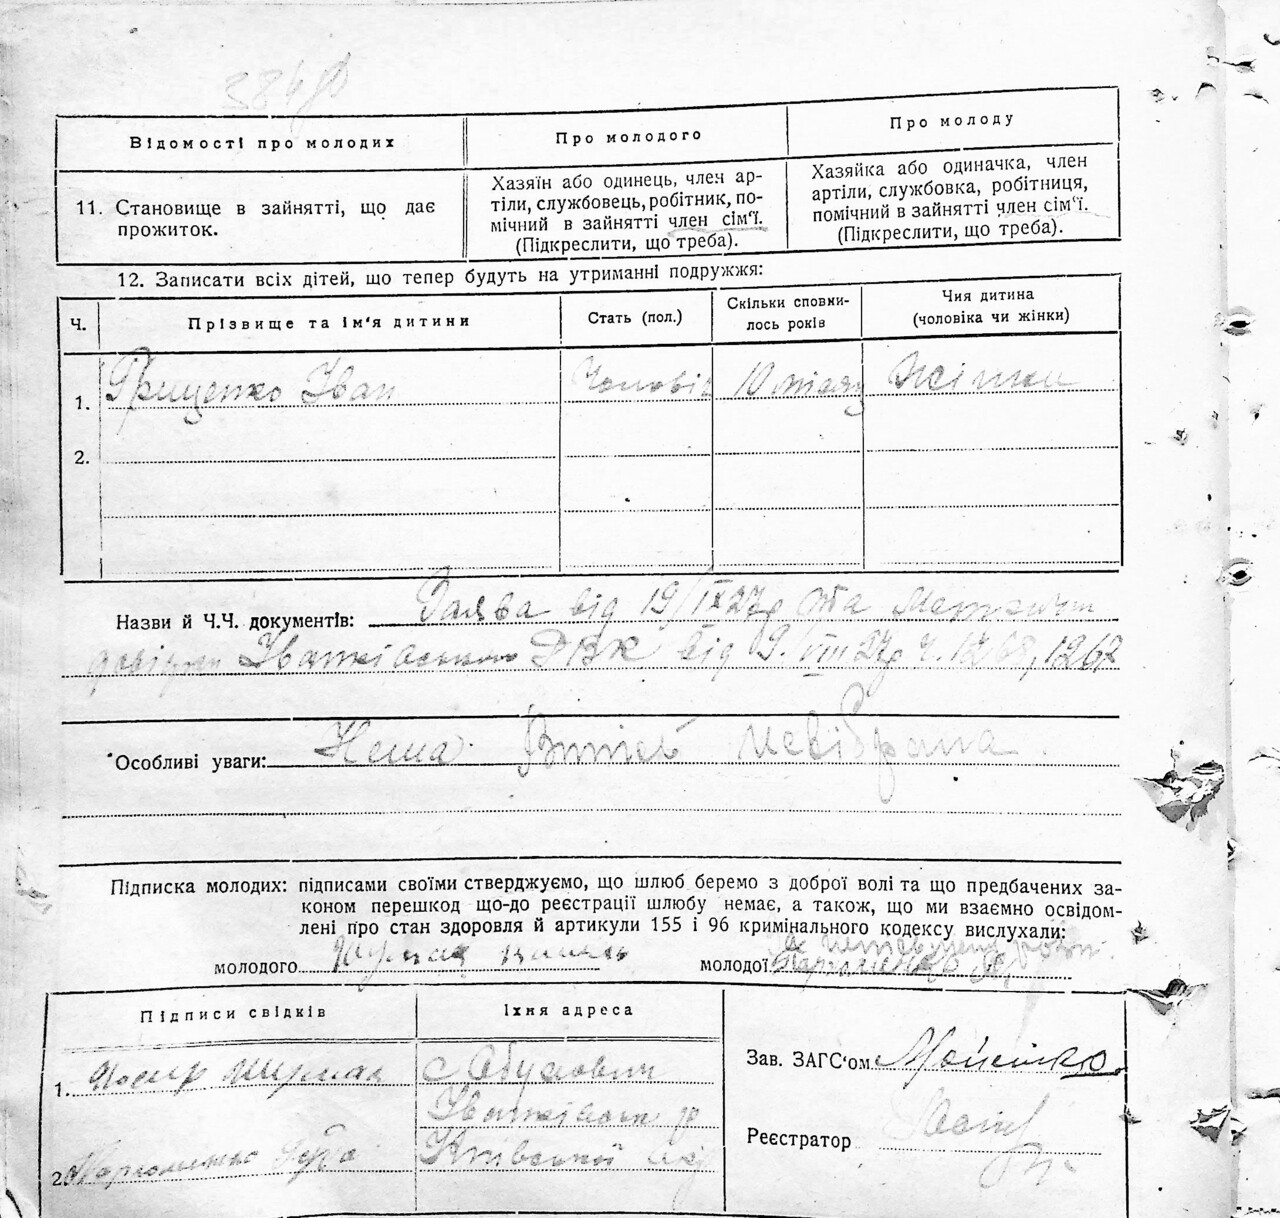 Відомості про молодих
Про молодого
Про молоду
11. Становище в зайнятті, що дає
прожиток.
Хазяїн або одинець, член ар-
тіли, службовець, робітник, по-
мічний в зайнятті член сім'ї.
(Підкреслити, що треба).
Хазяйка або одиначка, член
артіли, службовка, робітниця,
помічний в зайнятті член сім'ї.
(Підкреслити, що треба).
12. Записати всіх дітей, що тепер будуть на утриманні подружжя:
Ч.
Прізвище та ім'я дитини
Стать (пол.)
Скільки сповни-
лось років
Чия дитина
(чоловіка чи жінки)
1. Грищенко Іван
Чоловіч
10 місяц
Жінки
2.
Назви й Ч.Ч. документів: Заява від 19/ІХ 27р та
Іванківського РВК від 9/VIII 27р ч. 1268, 1267
Особливі уваги: Нема.
Підписка молодих: підписами своїми стверджуємо, що шлюб беремо з доброї волі та що предбачених за-
коном перешкод що-до реєстрації шлюбу немає, а також, що ми взаємно освідом-
лені про стан здоровля й артикули 155 і 96 кримінального кодексу вислухали:
молодого
молодої
Підписи свідків
Їхня адреса
1.
с Обухович
Іванківськ р
2.
Київської окр
Зав. ЗАГС'ом
Реєстратор